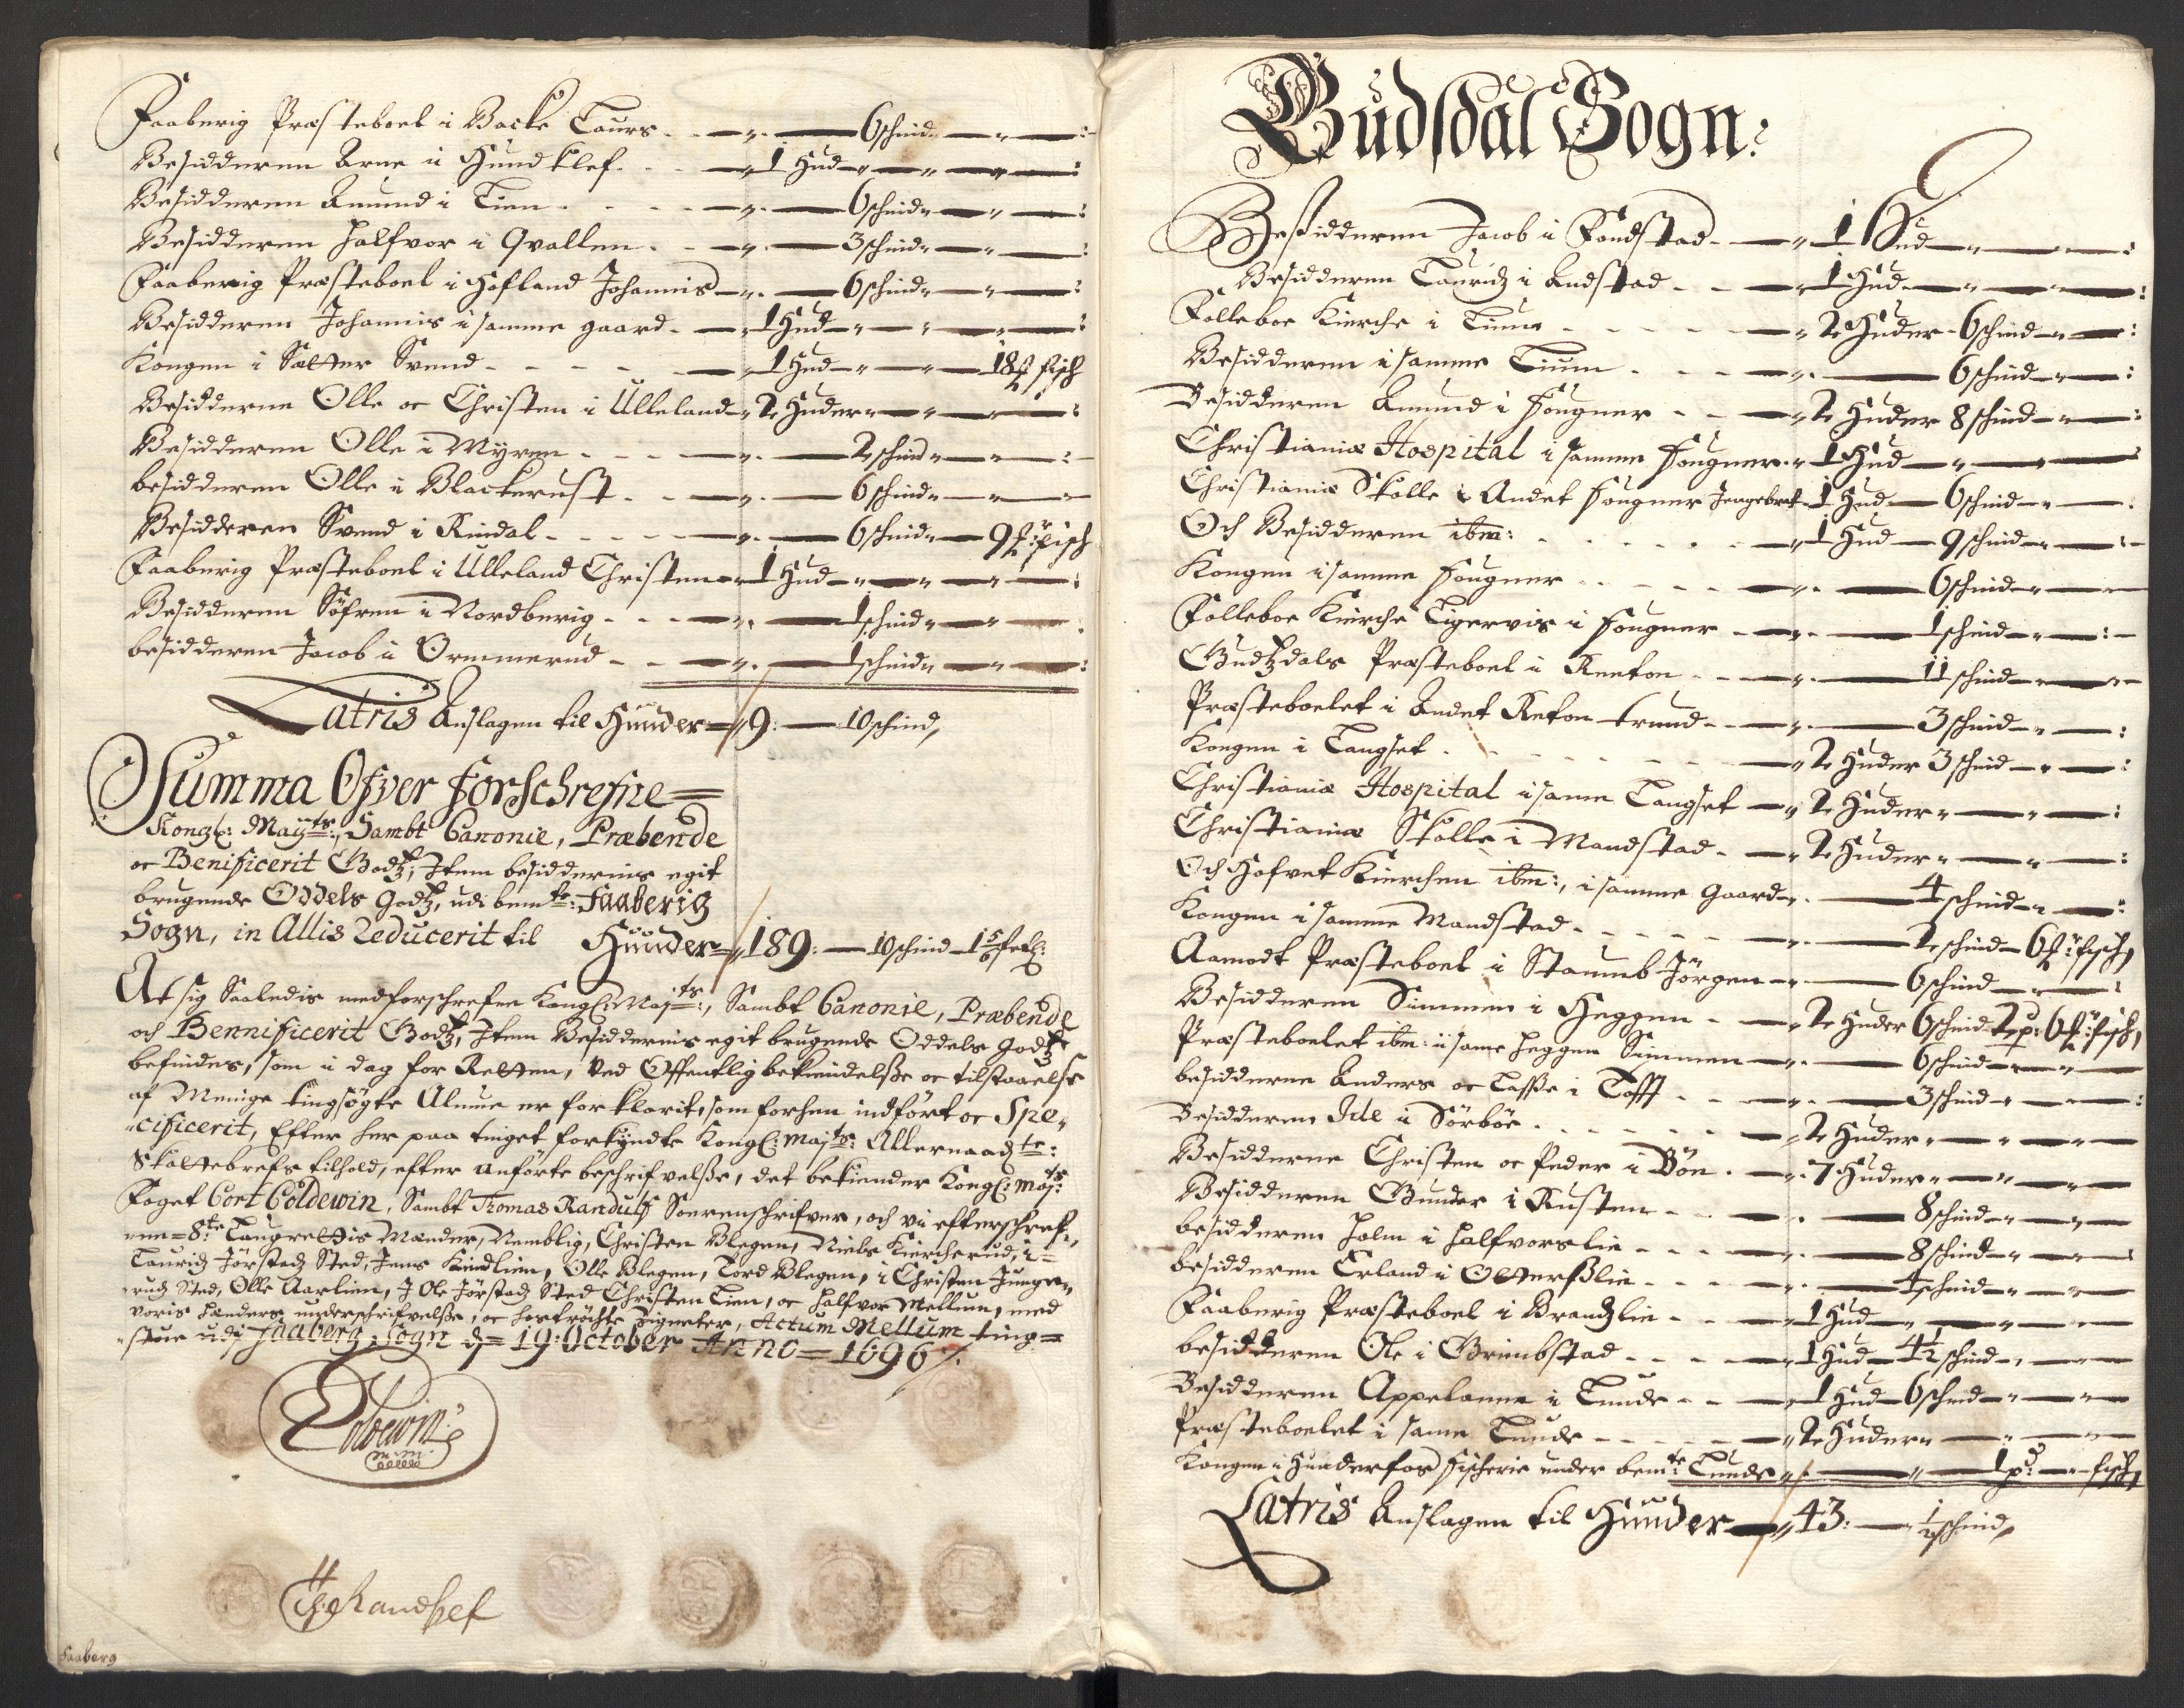 Faaberig Præsteboel i Backe Laurs - - 6 schind
Besidderen Arne i Hundklef - - 1 Hud
Besidderen Amund i Lien - - 6 schind
Besidderen Halfvor i Qvallen - - 3 schind
Faaberig Præsteboel i Hofland Johannis - 6 schind
Besidderen Johannis i samme gaard - 1 Hud
Kongen i Sætter Svend - - - 1 Hud - 18 fisch
Besidderne Olle oc Christen i Ulleland 2 Huder
Besidderen Olle i Myren - - 2 schind
besidderen Olle i Blackerust - - 6 schind
Besidderen Svend i Rindal - - - 6 schind 9 fisch
Faaberig Præsteboel i Ulleland Christen 1 Hud
Besidderen Söfren i Nordberig - - - 1 schind
besidderen Jacob i Ormmerud - - 1 schind
Latris Anslagen til Huuder 9: 10 schind
Summa Ofver forschrefne
Kongl: Mayts:, Sambt Canonie, Præbende
oc Benificerit Godtz, Item besiddernis egit
brugende Oddels Godtz, udi bemte: Faaberig
Sogn, in Allis Reducerit til Huuder 189: 10 schind 1 5/6
At sig Saaledis medforschrefne Kongl: Mayts:, Sambt Canonie, Præbende
och Bennificerit Godtz, Item Besiddernis egit brugende Oddels godtz
befindes, som i dag for Retten, Ved Offentlig bekiendelsse oc tilstaaelse
af Menige tingsögte Almue er forklarit, som forhen indfört oc Spe-
cificerit, Efter her paa tinget forkyndte Kongl: Majts: Allernaadte:
Skattebrefs tilhold, efter anförte beschrifvelsse, det bekiender Kongl: Majts:
Foget Cort Coldewin, Sambt Thomas Randulf Sorenschrifver, och vi efterschref-
ne 8te Laugrettis Mænder, Nemblig, Christen Blegen, Niels Kiercherud, i
Lauridz Jörstadz Sted, Jens Kindlien, Olle Blegen, Tord Blegen, i Christen Junge-
rudz Sted, Olle Aarlien, J Ole Jörstadz Sted Christen Lien, oc Halfvor Mellum, med
voris hænders underschrifvelsse, oc hoströgte Zigneter, Actum Mellum ting-
stue udj Faaberg Sogn d: 19: October Anno 1696
Coldewin
mm
Th Randulf
Faaberg
Gudsdal Sogn:
Besidderen Jacob i Fondstad - 1 Hud
Besidderen Lauridz i Audstad - - 1 Hud
Folleboe Kierche i Liune - - - 2 Huder 6 schind
Besidderen i samme Lium - - - 6 schind
Besidderen Amund i Fougner - - 2 Huder 8 schind
Christianiæ Hospital i samme Fougner 1 Hud
Christianiæ Skolle i Andet Fougner Jngebret 1 Hud 6 schind
Och Besidderen ibm: - - - 1 Hud 9 schind
Kongen i samme Fougner - - - 6 schind
Folleboe Kierche Ligervis i Fougner - 1 schind
Gudtzdals Præsteboel i Reeton - - - 11 schind
Præsteboelet i Andet Reton trund - - 3 schind
Kongen i Langset - - - 2 Huder 3 schind
Christianiæ Hospital i same Langset 2 Huder
Christianiæ Skolle i Maudstad - 2 Huder
Och Hofvet Kierchen ibm:, i samme Gaard 4 schind
Kongen i samme Maudstad - - - 2 schind 6 fisch
Aamodt Præsteboel i Staumb Jörgen - 6 schind
Besidderen Simmen i Heggen - 2 Huder 6 schind 2 p: 6 fisch
Præsteboelet ibm: i same Heggen Simmen 6 schind
besidderne Anders oc Lasse i Tofft - - 3 schind
Besidderen Idle i Sörböe - - - 2 Huder
Besidderne Christen oc Peder i Böe - 7 Huder
Besidderen Gunder i Rusten - - 8 schind
besidderen Holm i Halfvorslie - - 8 schind
besidderen Erland i Otterslie - - 4 schind
Faaberig Præsteboel i Brandzlie - - 1 Hud
besidderen Ole i Grimbstad - - 1 Hud 4½ schind
Besidderen Appelanne i Tunde - - 1 Hud 6 schind
Præsteboelet i same Tunde - - - 2 Huder
Kongen i Hunderfos Fischerie under bemte: Tunde 1 p: fisch
Latris Anslagen til Huuder 43: ½ schind